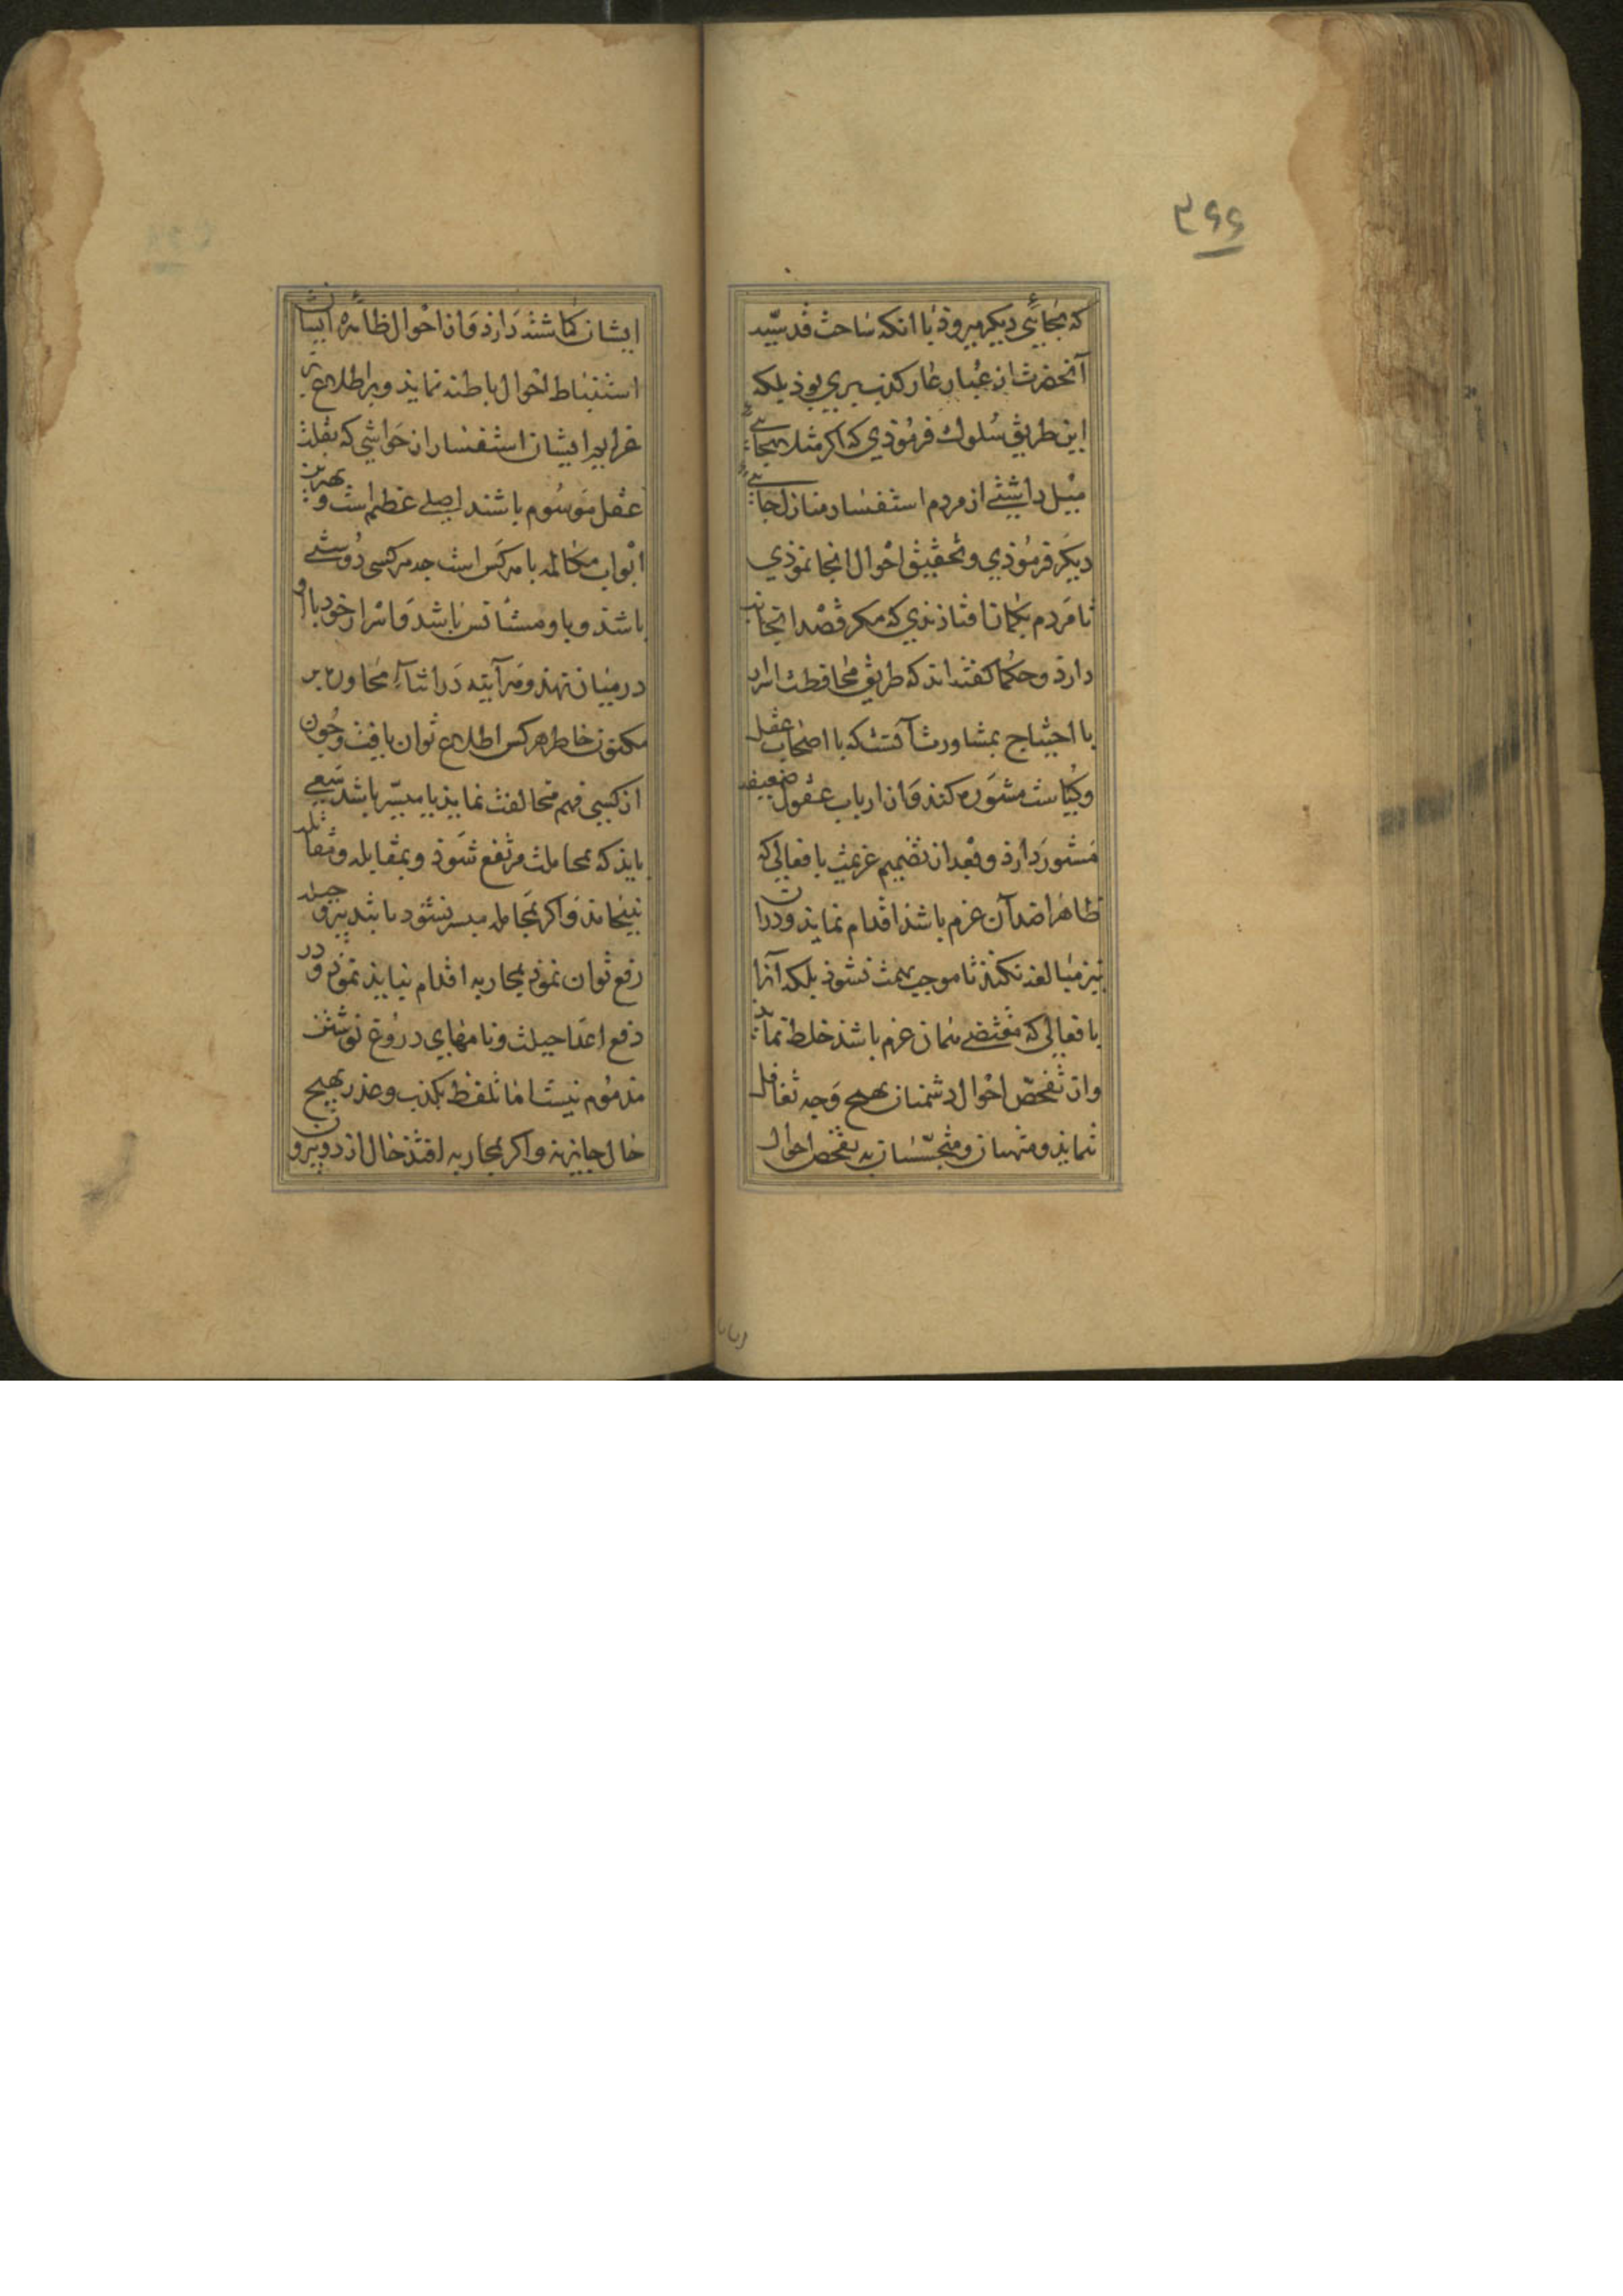 ۳۶۶
که بجائی دیگر میروذ با انکه ساحت قدسیه
آنحضرت از غبار عار کذب بری بوذ بلکه
این طریق سلوك فرموذی که اکر مثلا بجائے
میل داشتے از مردم استفسار منازل جائے
دیکر فرموذی و تحقیق احوال انجا نموذی
تا مردم بکمان افتاذندی که مکر قصد انجانب
دارذ و حکما کفته اند که طریق محافظت اسرار
با احتیاج بمشاورت آنست که با اصحاب عقل
و کیاست مشوره کنذ و از ارباب عقول ضعیفه
مستور دارذ و بعد از تصمیم عزیمت بافعالی که
ظاهرا ضد آن عزم باشذ اقدام نمایذ و دران
نیز مبالغه نکنذ تا موجب تهمت نشوذ بلکه آنرا
بافعالی که مقتضے همان عزم باشذ خلط نمایذ
و از تفحص احوال دشمنان بهیچ وجه تغافل
ننمایذ و منهیان و متجسسان به تفحص احوال
ایشان کماشته دارذ و از احوال ظاهره ایشان
استنباط احوال باطنه نمایذ و بر اطلاع بر
عزایم ایشان استفسار از حواشی که بقلت
عقل موسوم باشند اصلے عظیم است و بهترین
ابواب مکالمه با هر کس است چه هر کسی دوستے
باشذ و با او مستأنس باشد و اسرار خود با او
در میان نهذ و هر آینه در اثناء محاوره بر
مکنون خاطر هر کس اطلاع توان یافت و چون
از کسی فهم مخالفت نمایذ یا میسر باشد سعے
بایذ که بمجاملت مرتفع شوذ و بمقابله و مقاتله
نینجامذ و اکر بمجامله میسر نشود ما بتدبیر و حیله
رفع توان نموذ بمحاربه اقدام نبایذ نموذ و در
دفع اعدا حیلت و نامهای دروغ نوشتن
مذموم نیست اما تلفظ بکذب و غدر بهیچ
حال جایز نه و اکر بمحاربه افتذ حال از دو بیرون